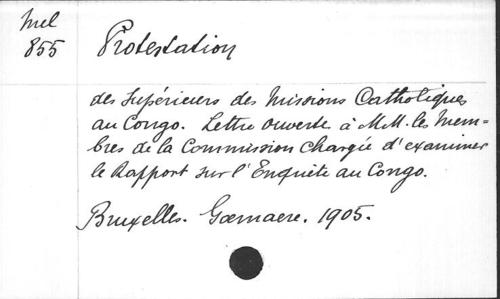 Mel
855
Protestation
des Supérieurs des Missions Catholiques
au Congo. Lettre ouverte à M.M. les Mem-
bres de la Commission chargée d'examiner
le Rapport sur l'Enquête au Congo.
Bruxelles. Goemaere. 1905.